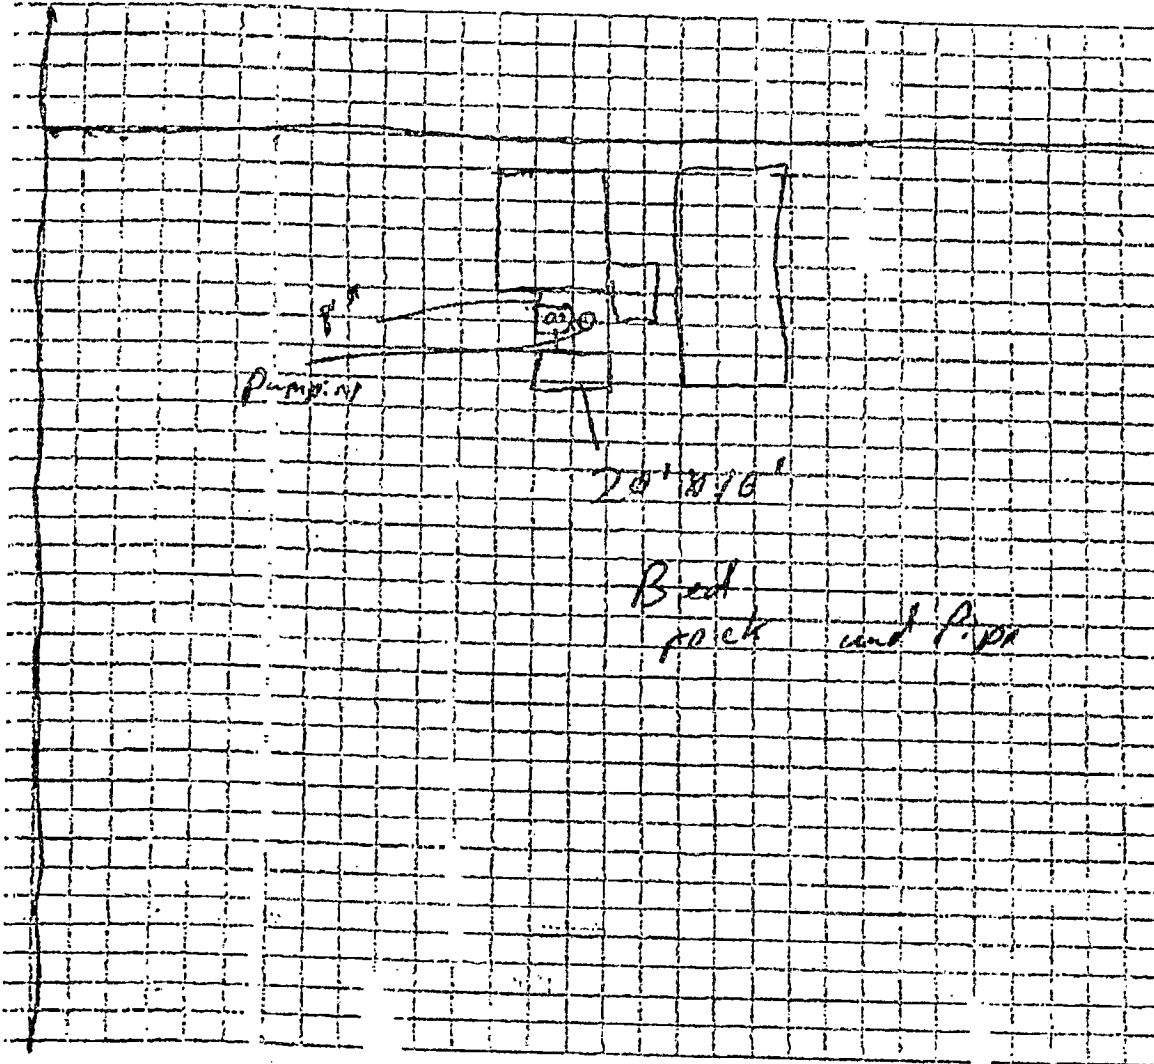 Pumping
20' x 10'
Bed
rock and Pipe